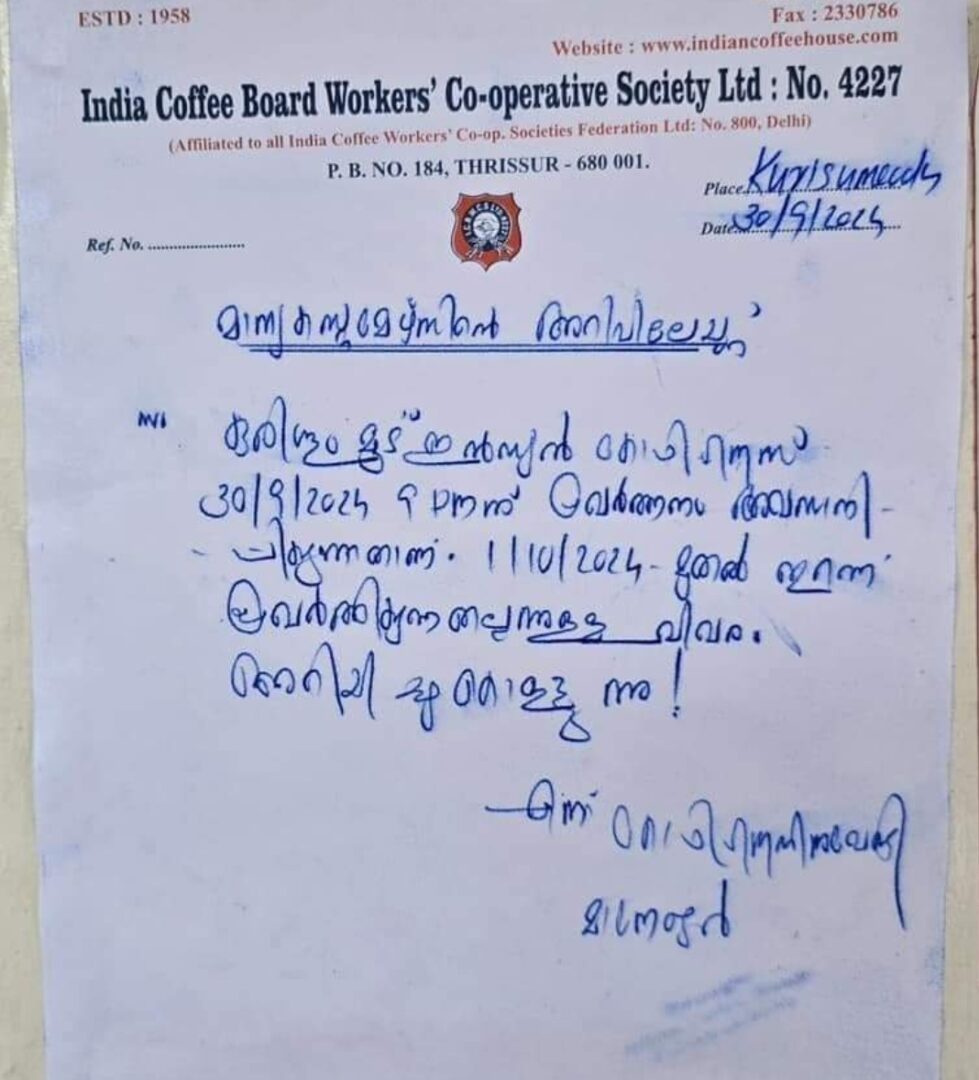 ESTD : 1958
Fax : 2330786
Website : www.indiancoffeehouse.com
India Coffee Board Workers' Co-operative Society Ltd : No. 4227
(Affiliated to all India Coffee Workers' Co-op. Societies Federation Ltd: No. 800, Delhi)
P. B. NO. 184, THRISSUR - 680 001.
Place
Date 30/9/2024
Ref. No. ........................
മാന്യ കസ്റ്റമേഴ്സിൻ്റെ അറിവിലേയ്ക്ക്
കുരിശുംമൂട് ഇൻഡ്യൻ കോഫി ഹൗസ്
30/9/2024 9 PM ന് പ്രവർത്തനം അവസാനി-
-പ്പിക്കുന്നതാണ്. 1/10/2024- മുതൽ തുറന്ന്
പ്രവർത്തിക്കുന്നതല്ലെന്നുള്ള വിവരം.
അറിയിച്ചു കൊള്ളുന്നു!
എന്ന് കോഫി ഹൗസിനുവേണ്ടി
മാനേജർ